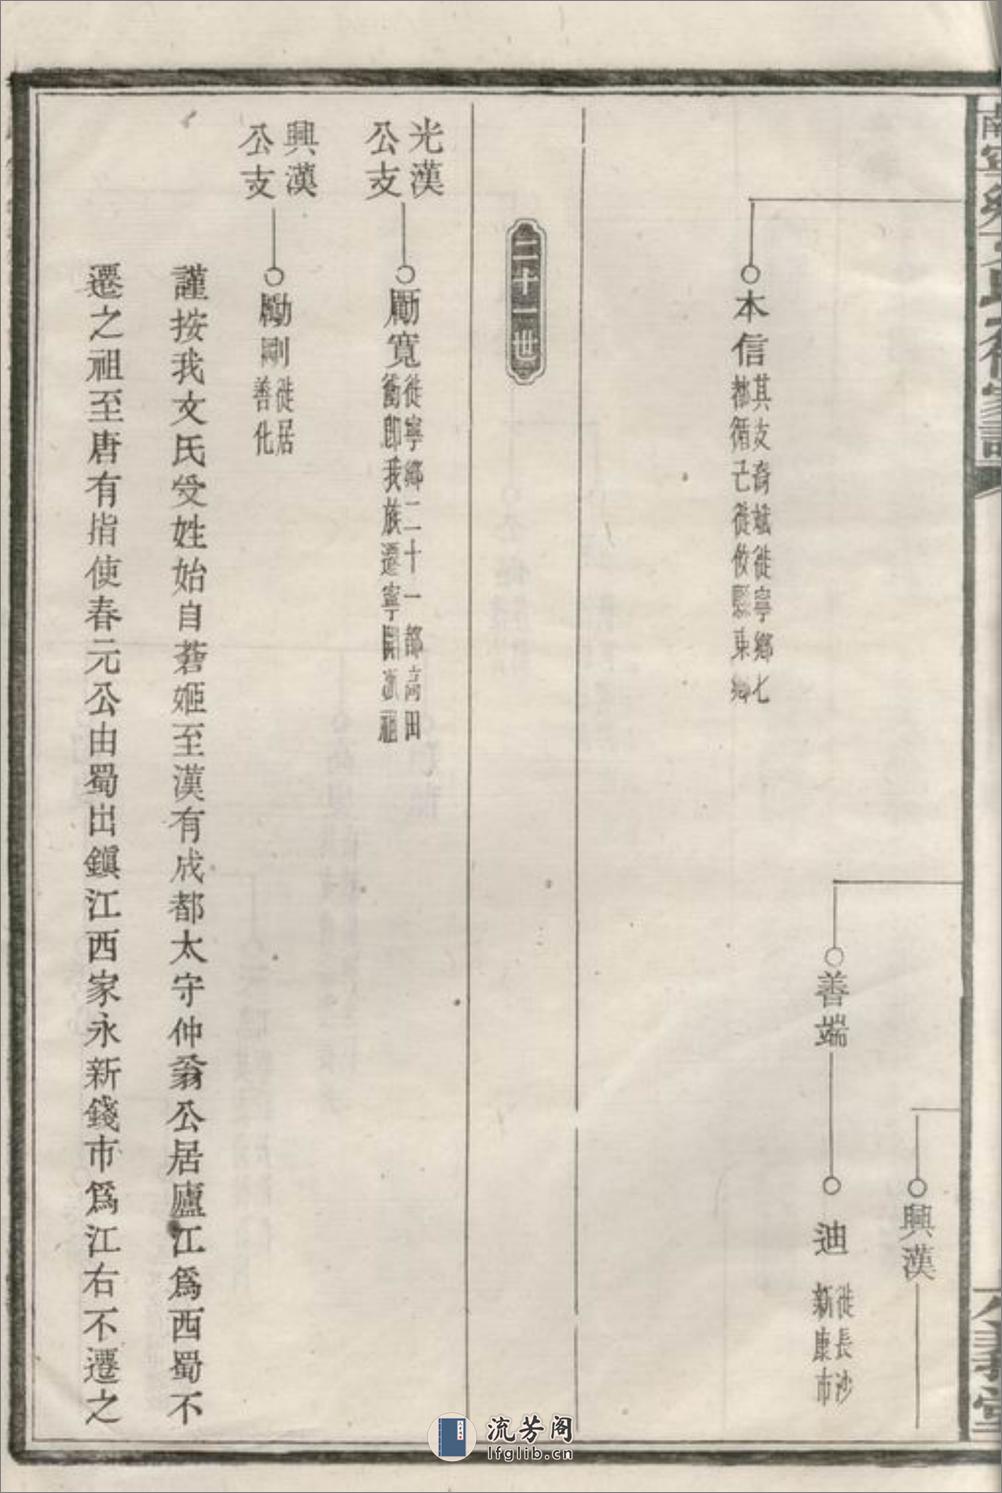 興漢
善端
迪
徙長沙
新康市
本信
其支裔斌徙寧鄉七
都循己徙攸縣東鄉
二十一世
光漢
公支
勵寬
徙寧鄉二十一都高田
衝即我族遷寧開派祖
興漢
公支
勵剛
徙居
善化
謹按我文氏受姓始自蒼姬至漢有成都太守仲翁公居廬江為西蜀不
遷之祖至唐有指使春元公由蜀出鎮江西家永新錢市為江右不遷之
流芳阁
lfglib.cn